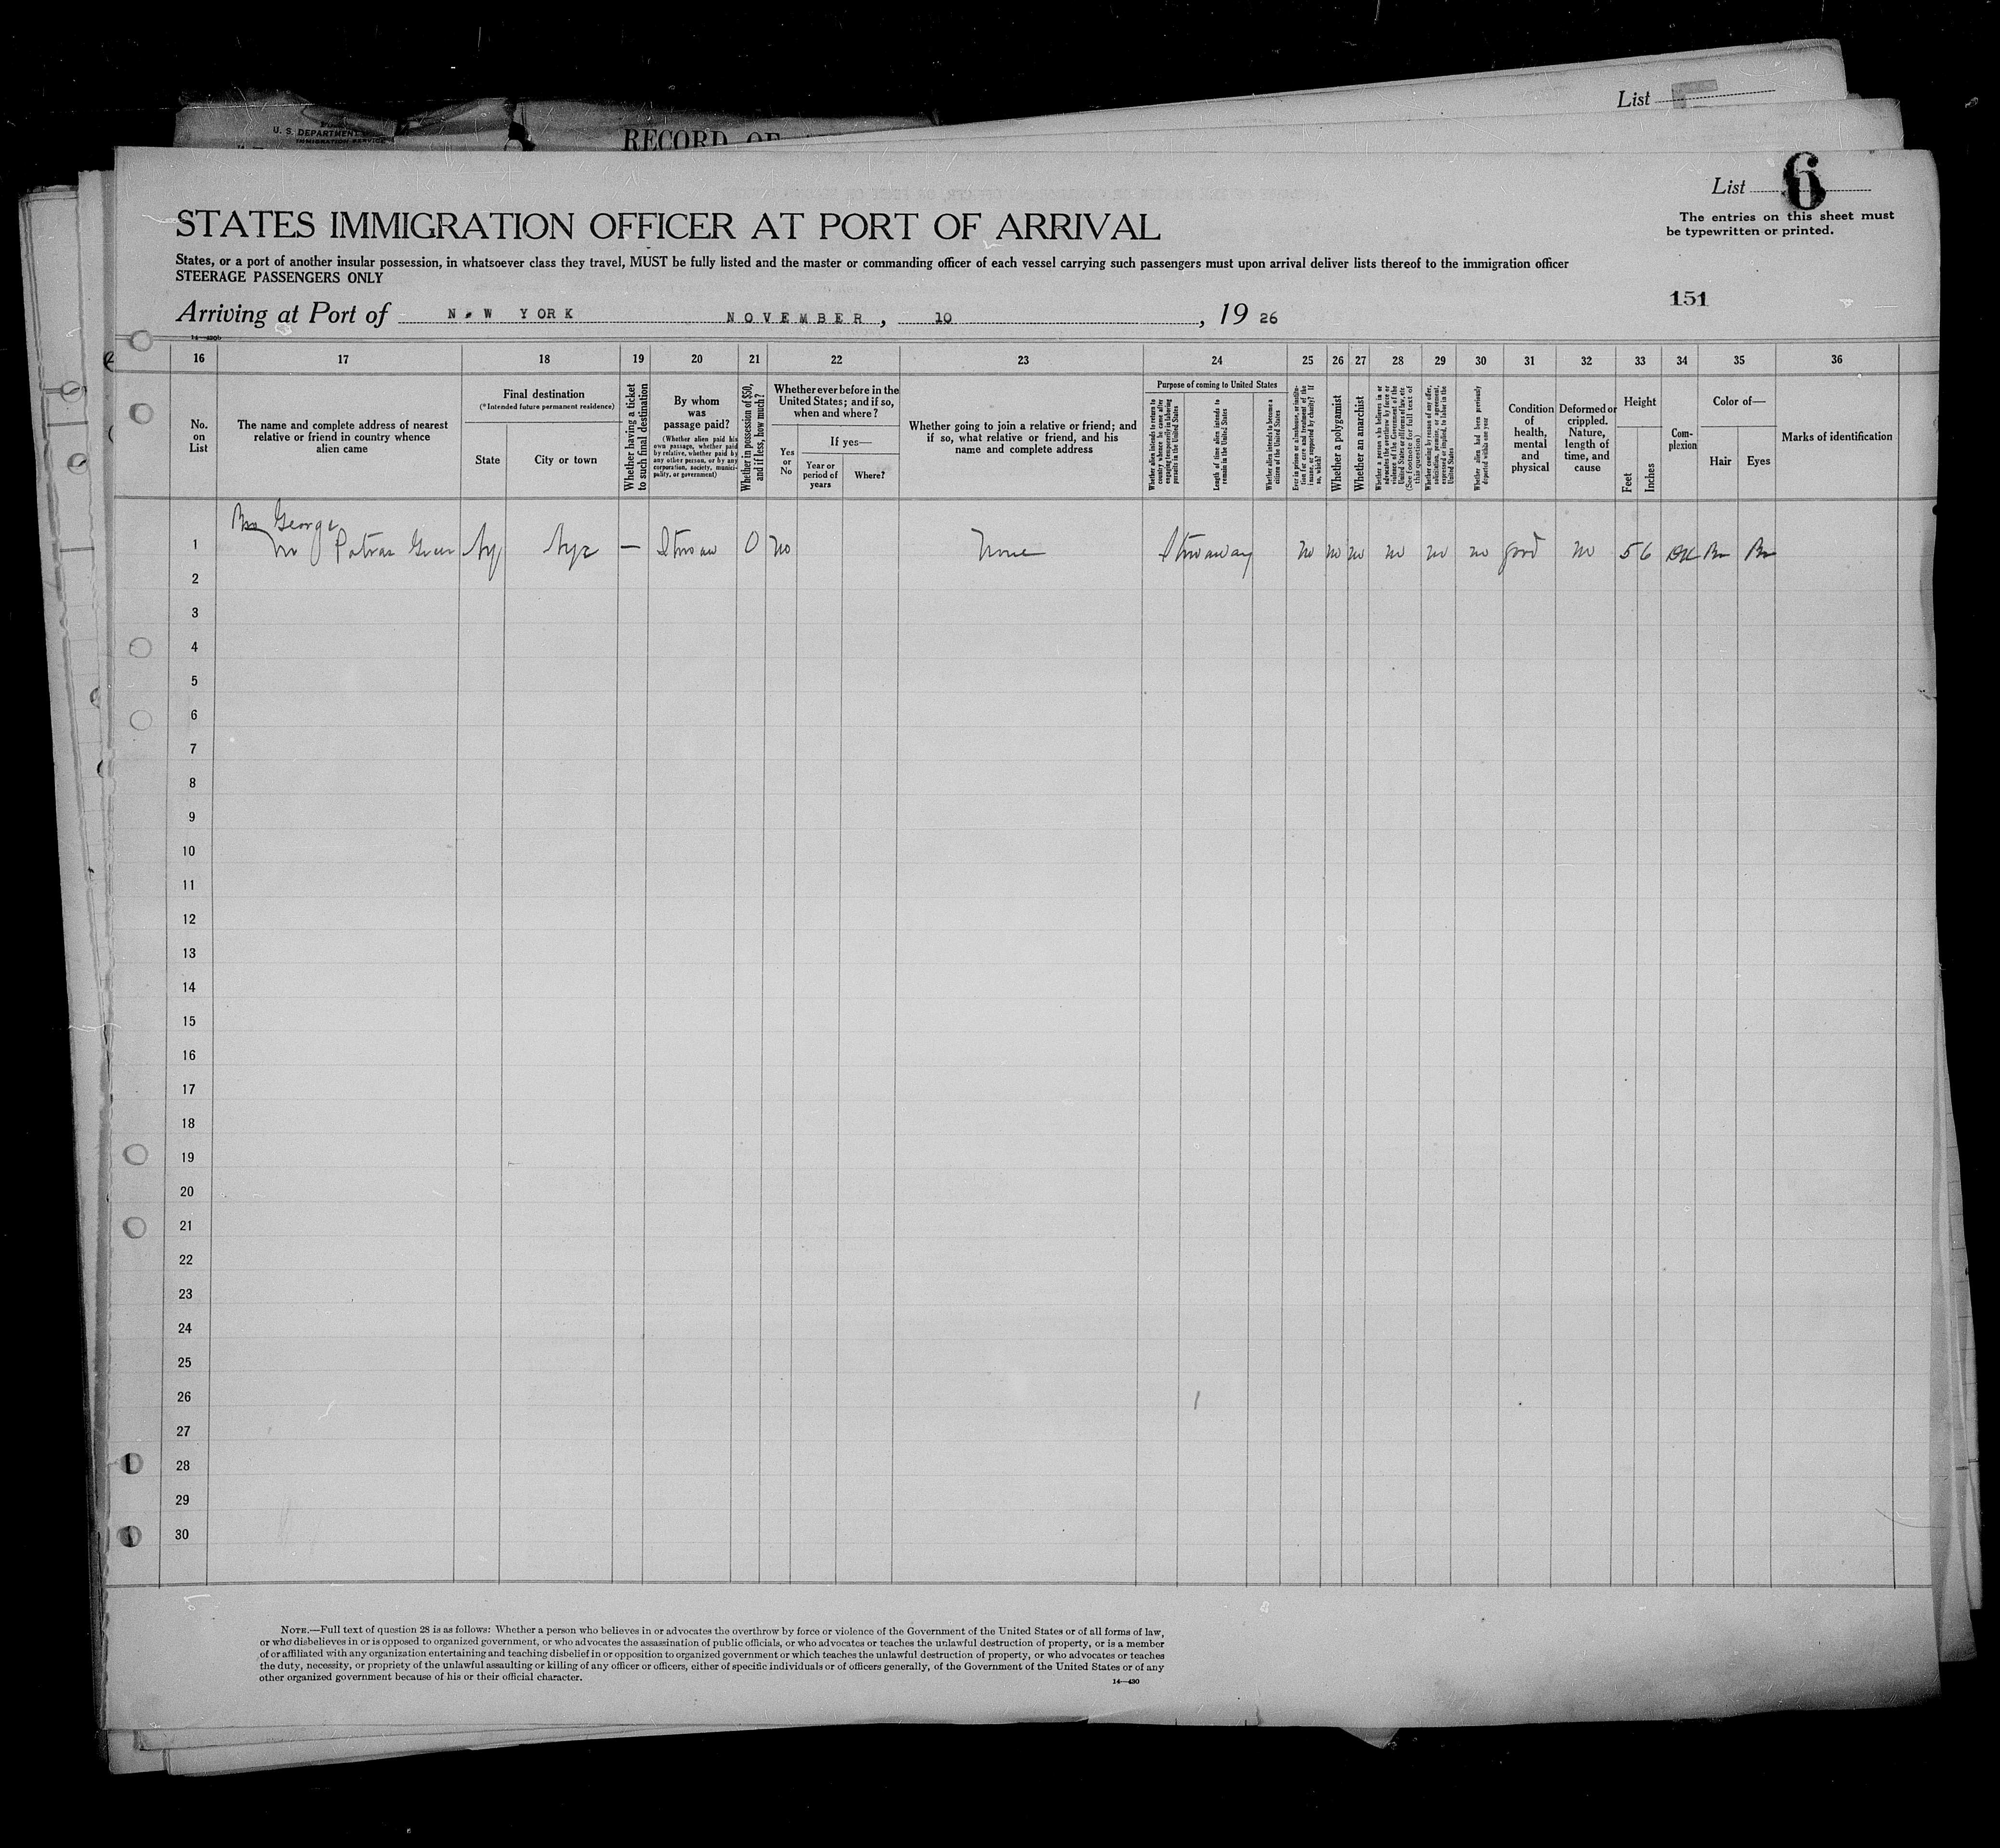 List
U. S. DEPARTMENT
IMMIGRATION SERVICE
RECORD OF
List 6
The entries on this sheet must
be typewritten or printed.
STATES IMMIGRATION OFFICER AT PORT OF ARRIVAL
States, or a port of another insular possession, in whatsoever class they travel, MUST be fully listed and the master or commanding officer of each vessel carrying such passengers must upon arrival deliver lists thereof to the immigration officer
STEERAGE PASSENGERS ONLY
151
Arriving at Port of NEW YORK NOVEMBER, 10, 1926
16 17 18 19 20 21 22 23 24 25 26 27 28 29 30 31 32 33 34 35 36
No.
on
List
The name and complete address of nearest
relative or friend in country whence
alien came
Final destination
(*Intended future permanent residence)
State
City or town
Whether having a ticket
to such final destination
By whom
was
passage paid?
(Whether alien paid his
own passage, whether paid
by relative, whether paid by
any other person, or by any
corporation, society, munici-
pality, or government)
Whether in possession of $50,
and if less, how much?
Whether ever before in the
United States; and if so,
when and where?
Yes
or
No
If yes—
Year or
period of
years
Where?
Whether going to join a relative or friend; and
if so, what relative or friend, and his
name and complete address
Purpose of coming to United States
Whether alien intends to return to
country whence he came after
engaging temporarily in laboring
pursuits in the United States
Length of time alien intends to
remain in the United States
Whether alien intends to become a
citizen of the United States
Ever in prison or almshouse, or institu-
tion for care and treatment of the
insane, or supported by charity? If
so, which?
Whether a polygamist
Whether an anarchist
Whether a person who believes in or
advocates the overthrow by force or
violence of the Government of the
United States or all forms of law, etc
(See footnote for full text of
this question)
Whether coming by reason of any offer,
solicitation, promise, or agreement,
expressed or implied, to labor in the
United States
Whether alien had been previously
deported within one year
Condition
of
health,
mental
and
physical
Deformed or
crippled.
Nature,
length of
time, and
cause
Height
Feet
Inches
Com-
plexion
Color of—
Hair
Eyes
Marks of identification
Bro George
1 Patras Nyc — 0 no None Stowaway no no no no no no good no 5 6 DK Bn Bn
2
3
4
5
6
7
8
9
10
11
12
13
14
15
16
17
18
19
20
21
22
23
24
25
26
27
28
29
30
NOTE.—Full text of question 28 is as follows: Whether a person who believes in or advocates the overthrow by force or violence of the Government of the United States or of all forms of law,
or who disbelieves in or is opposed to organized government, or who advocates the assassination of public officials, or who advocates or teaches the unlawful destruction of property, or is a member
of or affiliated with any organization entertaining and teaching disbelief in or opposition to organized government or which teaches the unlawful destruction of property, or who advocates or teaches
the duty, necessity, or propriety of the unlawful assaulting or killing of any officer or officers, either of specific individuals or of officers generally, of the Government of the United States or of any
other organized government because of his or their official character.
14—430